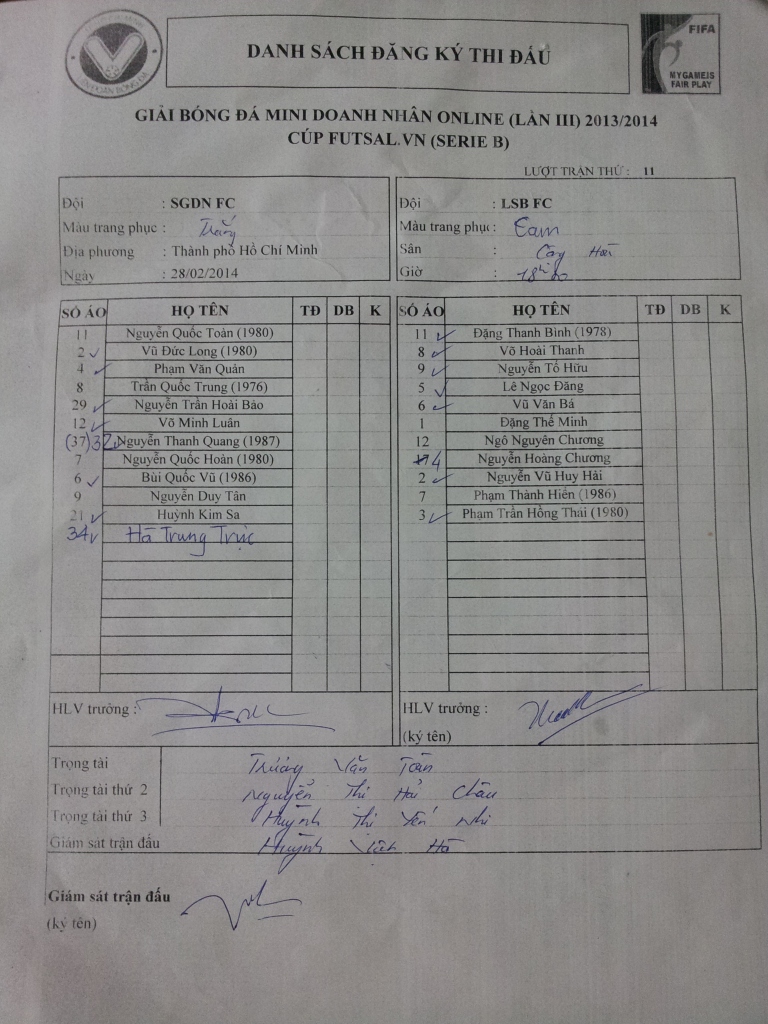 DANH SÁCH ĐĂNG KÝ THI ĐẤU
FIFA
MYGAMEIS
FAIR PLAY
GIẢI BÓNG ĐÁ MINI DOANH NHÂN ONLINE (LẦN III) 2013/2014
CÚP FUTSAL.VN (SERIE B)
LƯỢT TRẬN THỨ : 11
Đội : SGDN FC
Màu trang phục : Trắng
Địa phương : Thành phố Hồ Chí Minh
Ngày : 28/02/2014
Đội : LSB FC
Màu trang phục : Cam
Sân :
Giờ : 18h
SỐ ÁO HỌ TÊN TĐ DB K
11 Nguyễn Quốc Toàn (1980)
2 Vũ Đức Long (1980)
4 Phạm Văn Quản
8 Trần Quốc Trung (1976)
29 Nguyễn Trần Hoài Bảo
12 Võ Minh Luân
(37) 32 Nguyễn Thanh Quang (1987)
7 Nguyễn Quốc Hoàn (1980)
6 Bùi Quốc Vũ (1986)
9 Nguyễn Duy Tân
21 Huỳnh Kim Sa
34 Hà Trung Trực
SỐ ÁO HỌ TÊN TĐ DB K
11 Đặng Thanh Bình (1978)
8 Võ Hoài Thanh
9 Nguyễn Tố Hữu
5 Lê Ngọc Đăng
6 Vũ Văn Bá
1 Đặng Thế Minh
12 Ngô Nguyên Chương
17 4 Nguyễn Hoàng Chương
2 Nguyễn Vũ Huy Hải
7 Phạm Thành Hiển (1986)
3 Phạm Trần Hồng Thái (1980)
HLV trưởng :
HLV trưởng :
(ký tên)
Trọng tài Trương Văn Toàn
Trọng tài thứ 2 Nguyễn Thị Hải Châu
Trọng tài thứ 3 Huỳnh Thị Yến Nhi
Giám sát trận đấu Huỳnh Hà
Giám sát trận đấu
(ký tên)